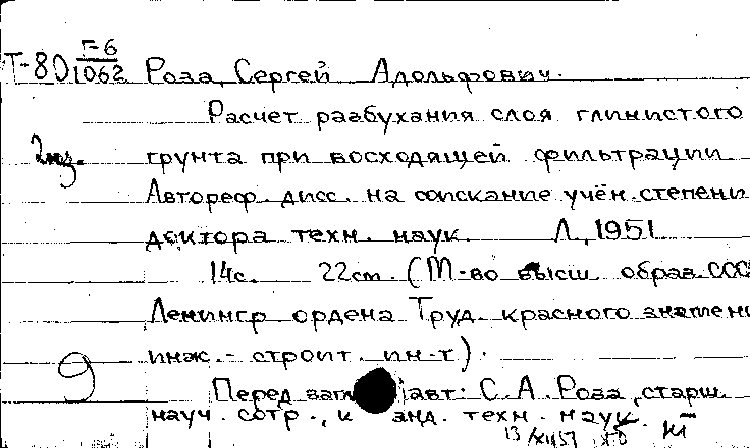 Г-6
Т-80 1062 Роза, Сергей Адольфович.
Расчет разбухания слоя глинистого
2 экз. грунта при восходящей фильтрации
Автореф. дисс. на соискание учён. степени
доктора техн. наук. Л, 1951
14с. 22см. (М-во высш образ. ССС
Ленингр ордена Труд. красного знамени
инж. - строит. ин-т).
9
Перед загл авт: С. А. Роза, старш.
науч. сотр., к анд. техн. наук.